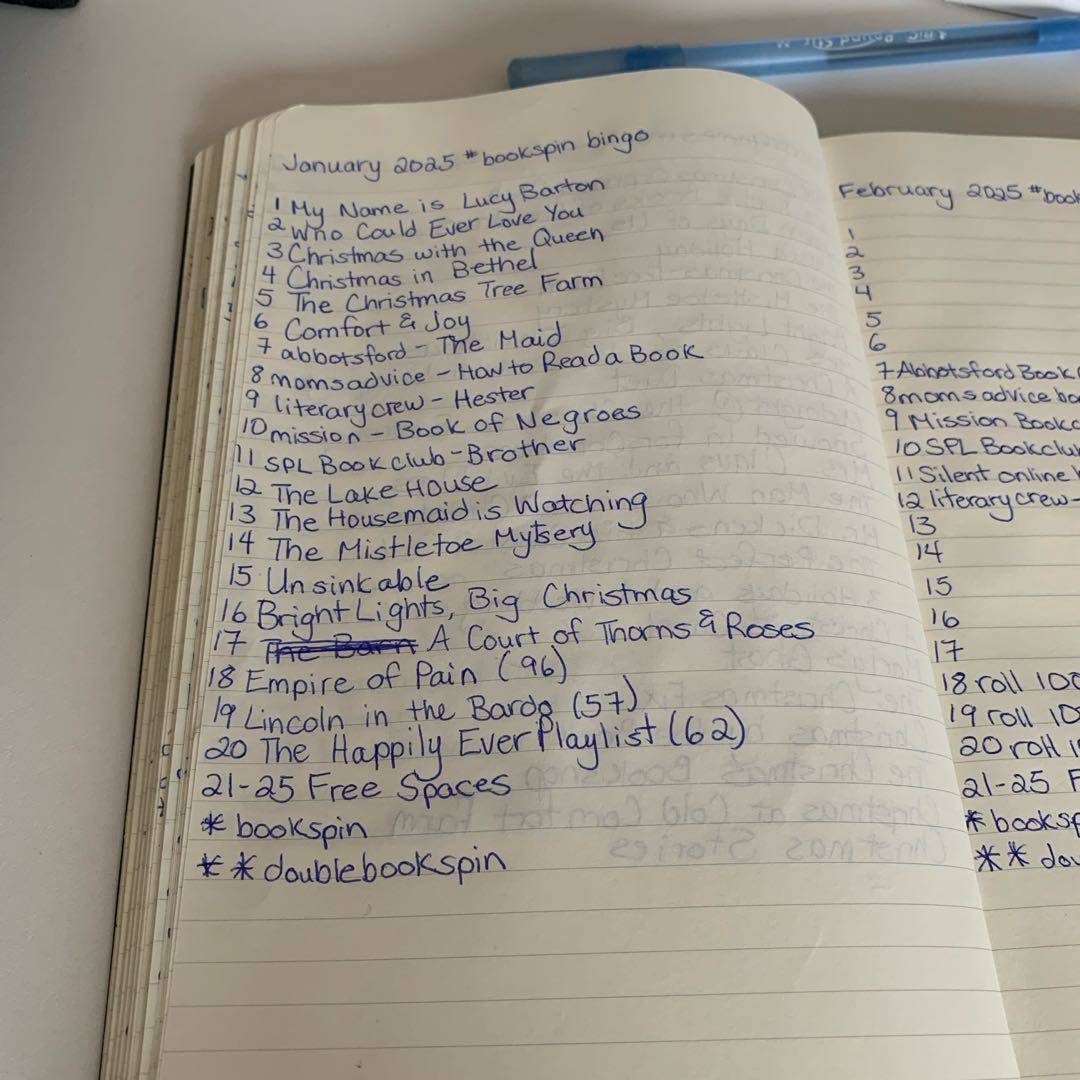 January 2025 #bookspin bingo
1 My Name is Lucy Barton
2 Who Could Ever Love You
3 Christmas with the Queen
4 Christmas in Bethel
5 The Christmas Tree Farm
6 Comfort & Joy
7 abbotsford - The Maid
8 momsadvice - How to Read a Book
9 literarycrew - Hester
10 mission - Book of Negroes
11 SPL Bookclub - Brother
12 The Lake House
13 The Housemaid is Watching
14 The Mistletoe Mytsery
15 Unsinkable
16 Bright Lights, Big Christmas
17 The Barn A Court of Thorns & Roses
18 Empire of Pain (96)
19 Lincoln in the Bardo (57)
20 The Happily Ever Playlist (62)
21-25 Free Spaces
* bookspin
** doublebookspin
February 2025 #book
1
2
3
4
5
6
7 Abbotsford Book
8 momsadvice
9 Mission
10 SPL Bookclu
11 Silent online
12 literarycrew-
13
14
15
16
17
18 roll 100
19 roll
20 roll
21-25 F
* booksp
** dou
Round Stic